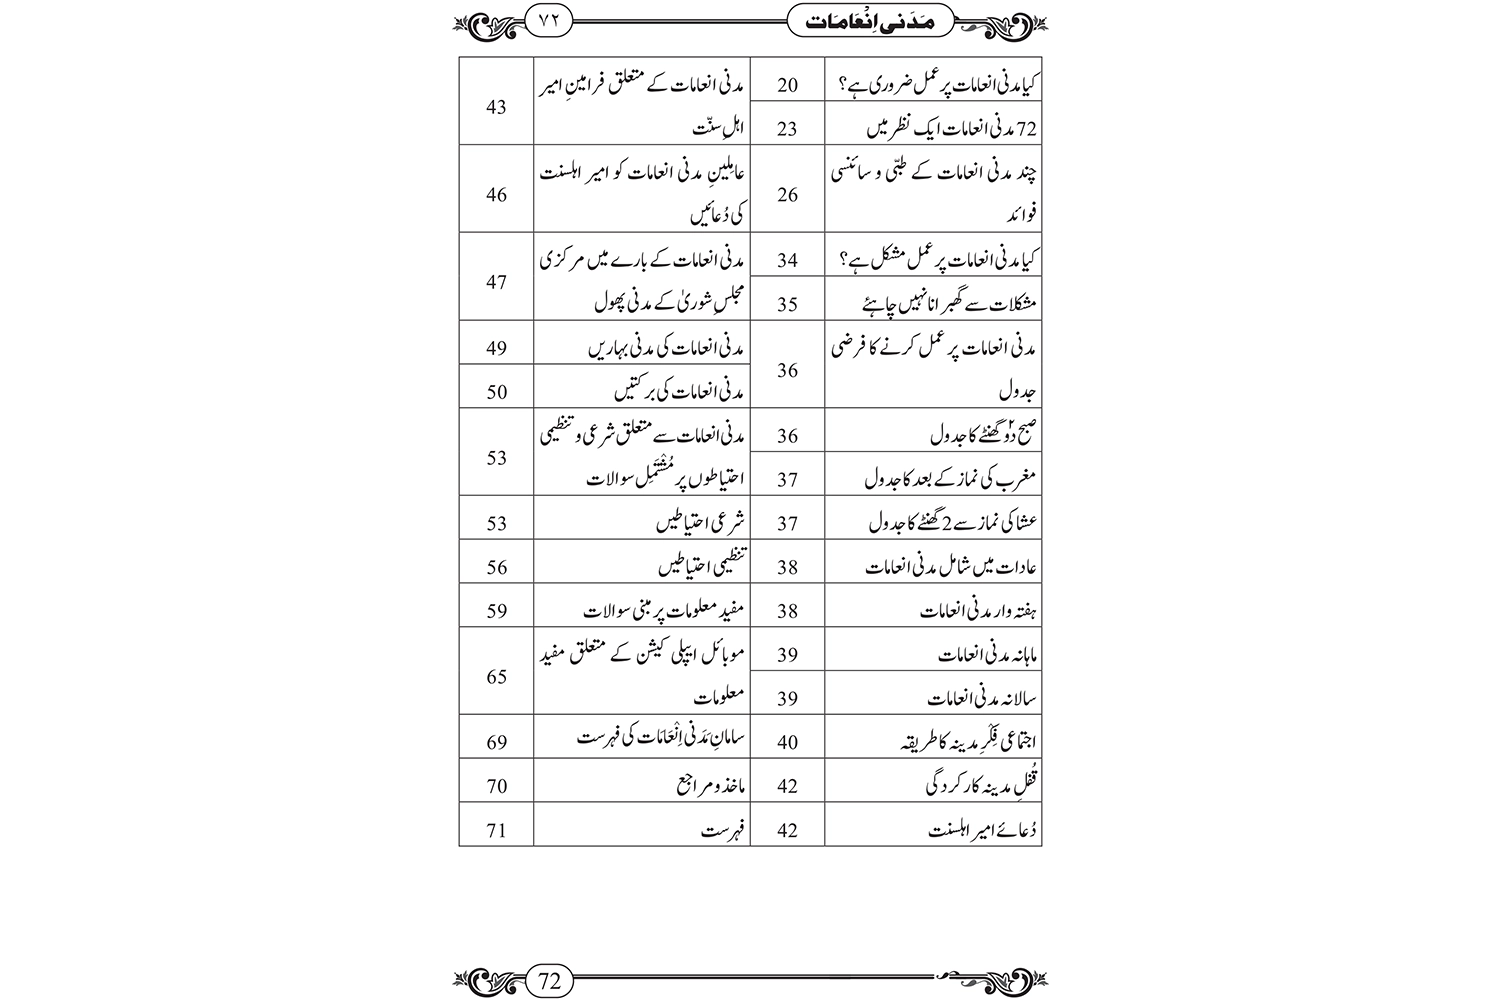 مَدَنی اِنْعَامَات
۷۲
کیا مدنی انعامات پر عمل ضروری ہے؟ 20
72 مدنی انعامات ایک نظر میں 23
چند مدنی انعامات کے طبّی و سائنسی
فوائد 26
کیا مدنی انعامات پر عمل مشکل ہے؟ 34
مشکلات سے گھبرانا نہیں چاہئے 35
مدنی انعامات پر عمل کرنے کا فرضی
جدول 36
صبح دو۲ گھنٹے کا جدول 36
مغرب کی نماز کے بعد کا جدول 37
عشا کی نماز سے 2 گھنٹے کا جدول 37
عادات میں شامل مدنی انعامات 38
ہفتہ وار مدنی انعامات 38
ماہانہ مدنی انعامات 39
سالانہ مدنی انعامات 39
اجتماعی فِکْرِ مدینہ کا طریقہ 40
قُفلِ مدینہ کارکردگی 42
دُعائے امیر اہلسنت 42
مدنی انعامات کے متعلق فرامینِ امیر
اہلِ سنّت 43
عاملینِ مدنی انعامات کو امیر اہلسنت
کی دُعائیں 46
مدنی انعامات کے بارے میں مرکزی
مجلسِ شوریٰ کے مدنی پھول 47
مدنی انعامات کی مدنی بہاریں 49
مدنی انعامات کی برکتیں 50
مدنی انعامات سے متعلق شرعی و تنظیمی
احتیاطوں پر مُشْتَمِل سوالات 53
شرعی احتیاطیں 53
تنظیمی احتیاطیں 56
مفید معلومات پر مبنی سوالات 59
موبائل ایپلی کیشن کے متعلق مفید
معلومات 65
سامانِ مَدَنی اِنْعَامَات کی فہرست 69
ماخذ و مراجع 70
فہرست 71
72